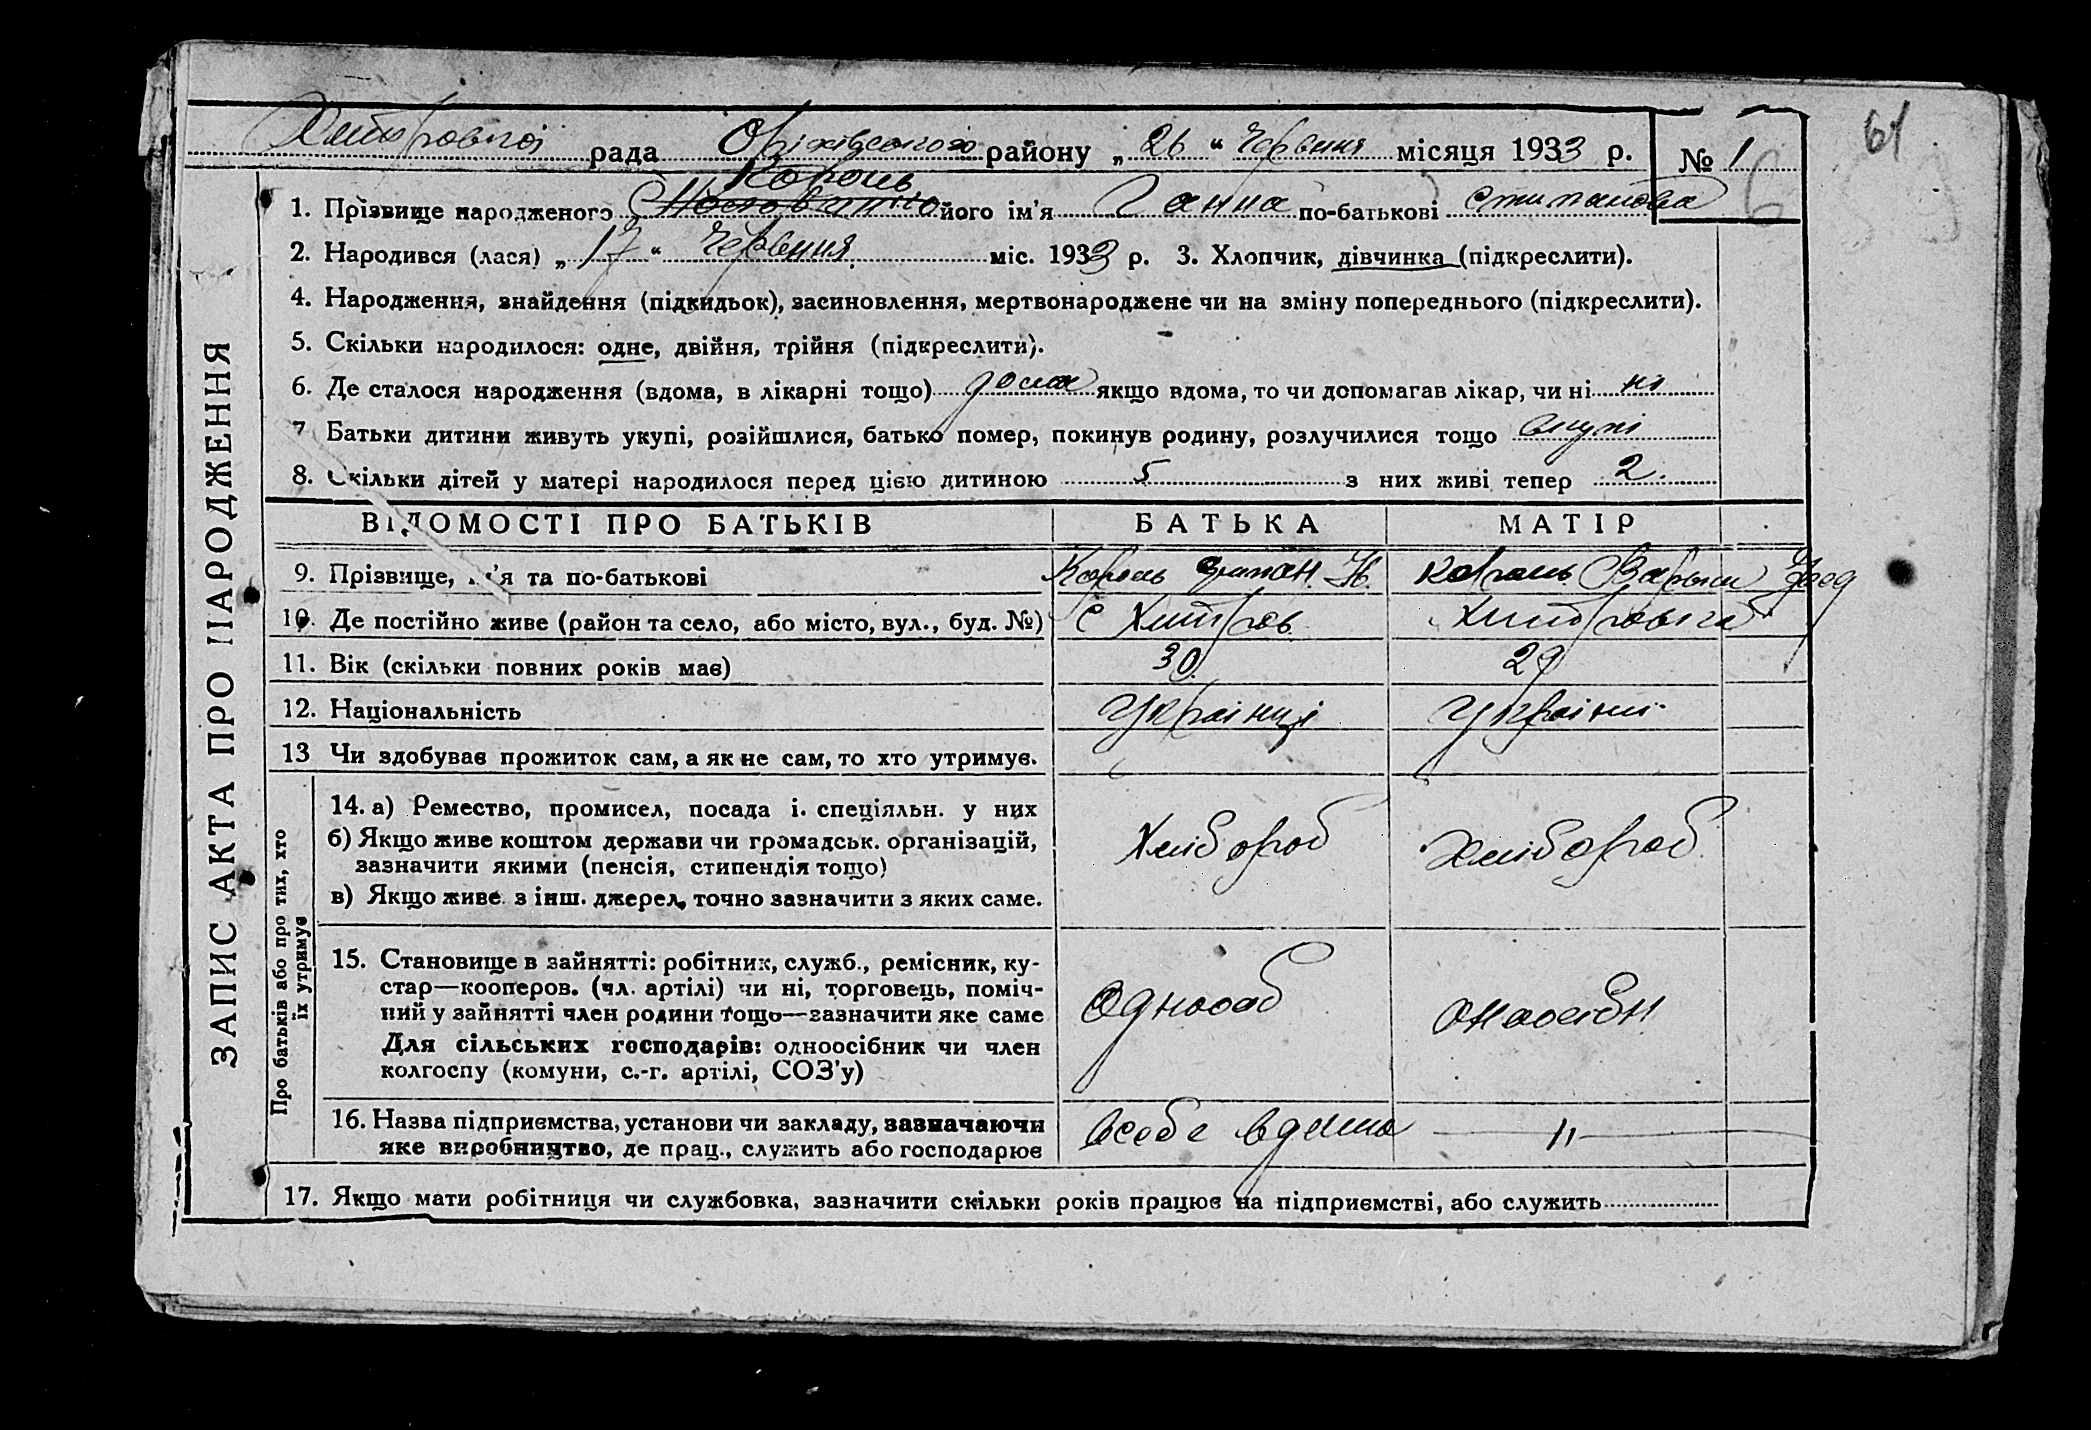 61
рада Оріхівського району „ 26 “ Червня місяця 1933 р. № 1
Король
1. Прізвище народженого його ім’я Ганна по-батькові Степанова
2. Народився (лася) „ 17 “ Червня міс. 1933 р. 3. Хлопчик, дівчинка (підкреслити).
4. Народження, знайдення (підкидьок), засиновлення, мертвонароджене чи на зміну попереднього (підкреслити).
5. Скільки народилося: одне, двійня, трійня (підкреслити).
6. Де сталося народження (вдома, в лікарні тощо) дома якщо вдома, то чи допомагав лікар, чи ні ні
7 Батьки дитини живуть укупі, розійшлися, батько помер, покинув родину, розлучилися тощо вкупі
8. Скільки дітей у матері народилося перед цією дитиною 5 з них живі тепер 2.
ЗАПИС АКТА ПРО НАРОДЖЕННЯ
ВІДОМОСТІ ПРО БАТЬКІВ БАТЬКА МАТІР
9. Прізвище, ім’я та по-батькові Король Степан Король
10. Де постійно живе (район та село, або місто, вул., буд. №) с
11. Вік (скільки повних років має) 30 29
12. Національність Українці
13 Чи здобував прожиток сам, а як не сам, то хто утримує.
Про батьків або про тих, хто
їх утримує
14. а) Ремество, промисел, посада і. спеціяльн. у них
б) Якщо живе коштом держави чи громадськ. організацій,
зазначити якими (пенсія, стипендія тощо)
Хлібороб Хлібороб
в) Якщо живе з інш. джерел, точно зазначити з яких саме.
15. Становище в зайнятті: робітник, служб., ремісник, ку-
стар—кооперов. (чл. артілі) чи ні, торговець, поміч-
ний у зайнятті член родини тощо—зазначити яке саме
Для сільських господарів: одноосібник чи член
колгоспу (комуни, с.-г. артілі, СОЗ’у)
16. Назва підприємства, установи чи закладу, зазначаючи
яке виробництво, де прац., служить або господарює
всебе вдома — „ —
17. Якщо мати робітниця чи службовка, зазначити скільки років працює на підприємстві, або служить